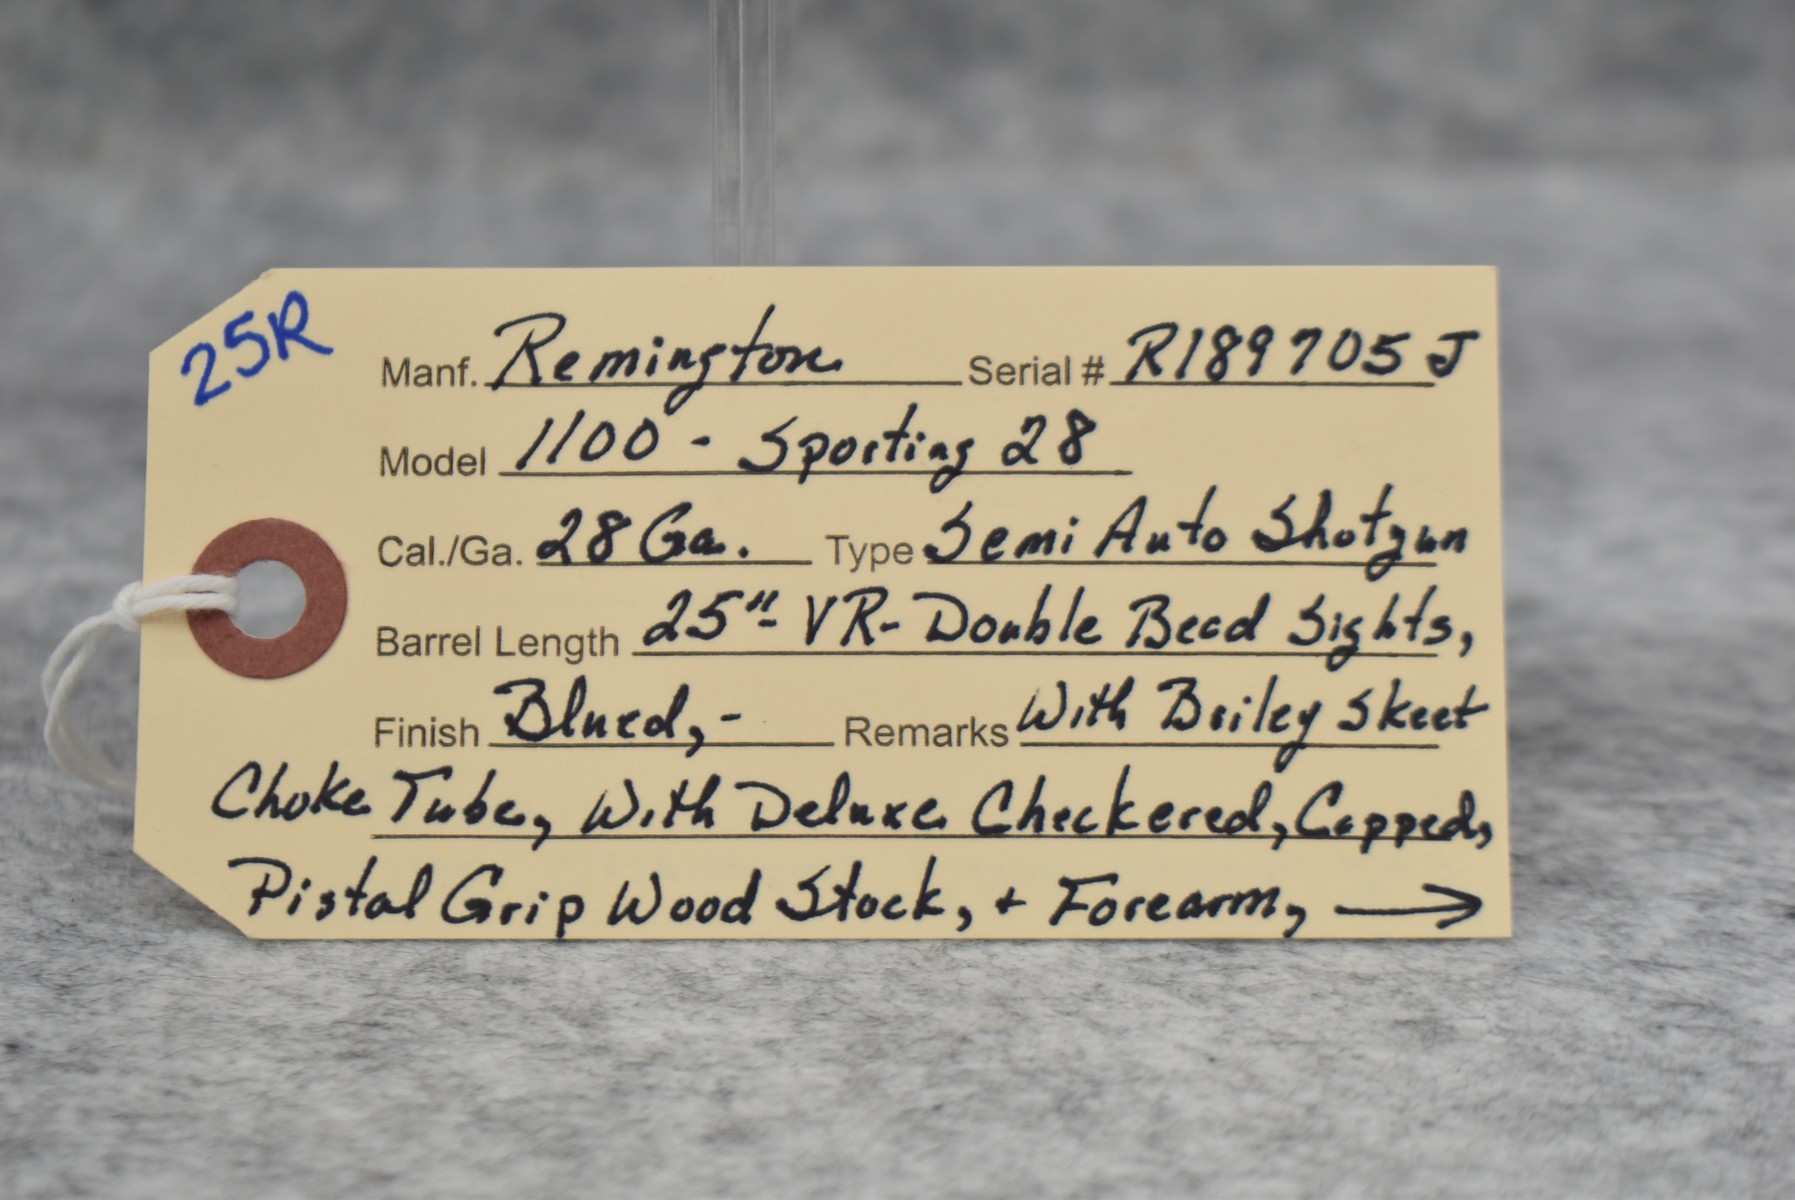 25R
Manf. Remington Serial # R189705J
Model 1100 - Sporting 28
Cal./Ga. 28 Ga. Type Semi Auto Shotgun
Barrel Length 25"- VR- Double Bead Sights,
Finish Blued,- Remarks With Briley Skeet
Choke Tube, With Deluxe Checkered, Capped,
Pistal Grip Wood Stock, + Forearm, →